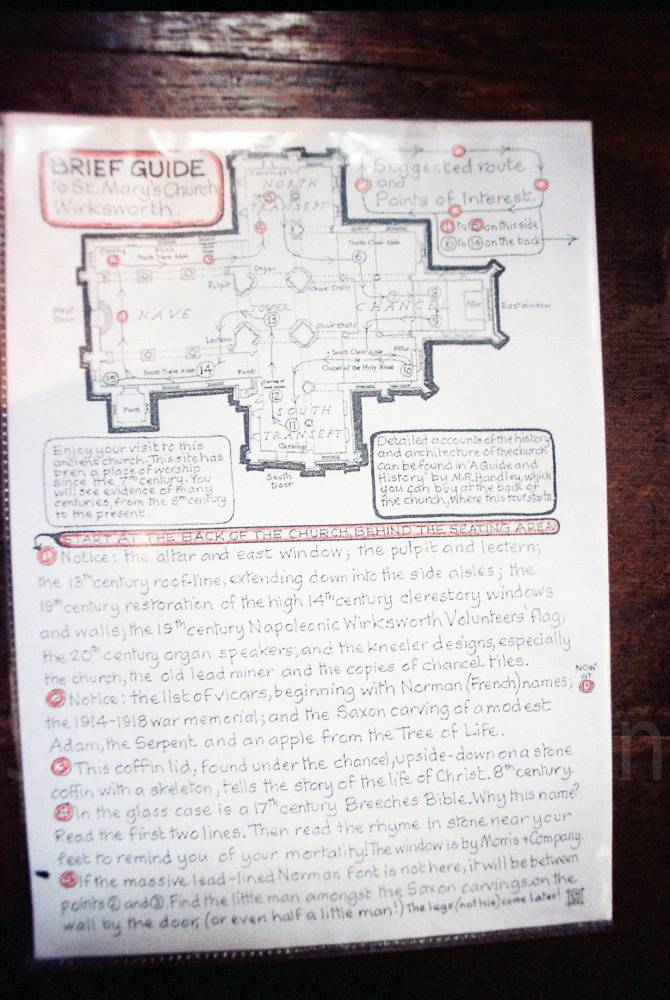 BRIEF GUIDE
to St. Mary's Church
Wirksworth.
Suggested route
and
Points of Interest.
① to ⑤ on this side
⑥ to ⑭ on the back
NORTH
TRANSEPT
North Nave Aisle
North Choir Aisle
Organ
Pulpit
Choir Stalls
NAVE
TOWER
CHANCEL
Altar
East Window
West
Door
Choir Stalls
Lectern
South Choir Aisle
or
Chapel of the Holy Rood
Altar
South Nave Aisle
Font
Porch
SOUTH
TRANSEPT
Carvings
South
Door
Enjoy your visit to this
ancient church. This site has
been a place of worship
since the 7th century. You
will see evidence of many
centuries, from the 8th century
to the present.
Detailed accounts of the history
and architecture of the church
can be found in 'A Guide and
History' by M.R. Handley, which
you can buy at the back of
the church, where this tour starts.
START AT THE BACK OF THE CHURCH, BEHIND THE SEATING AREA
① Notice: the altar and east window; the pulpit and lectern;
the 13th century roof-line, extending down into the side aisles; the
19th century restoration of the high 14th century clerestory windows
and walls; the 19th century Napoleonic Wirksworth Volunteers' flag;
the 20th century organ speakers; and the kneeler designs, especially
the church, the old lead miner and the copies of chancel tiles.
② Notice: the list of vicars, beginning with Norman (French) names;
NOW
at
the 1914-1918 war memorial; and the Saxon carving of a modest
Adam, the Serpent and an apple from the Tree of Life.
③ This coffin lid, found under the chancel, upside-down on a stone
coffin with a skeleton, tells the story of the life of Christ. 8th century.
④ In the glass case is a 17th century Breeches Bible. Why this name?
Read the first two lines. Then read the rhyme in stone near your
feet to remind you of your mortality! The window is by Morris + Company.
⑤ If the massive lead-lined Norman font is not here, it will be between
points ② and ③. Find the little man amongst the Saxon carvings on the
wall by the door, (or even half a little man!) The legs (not his) come later!